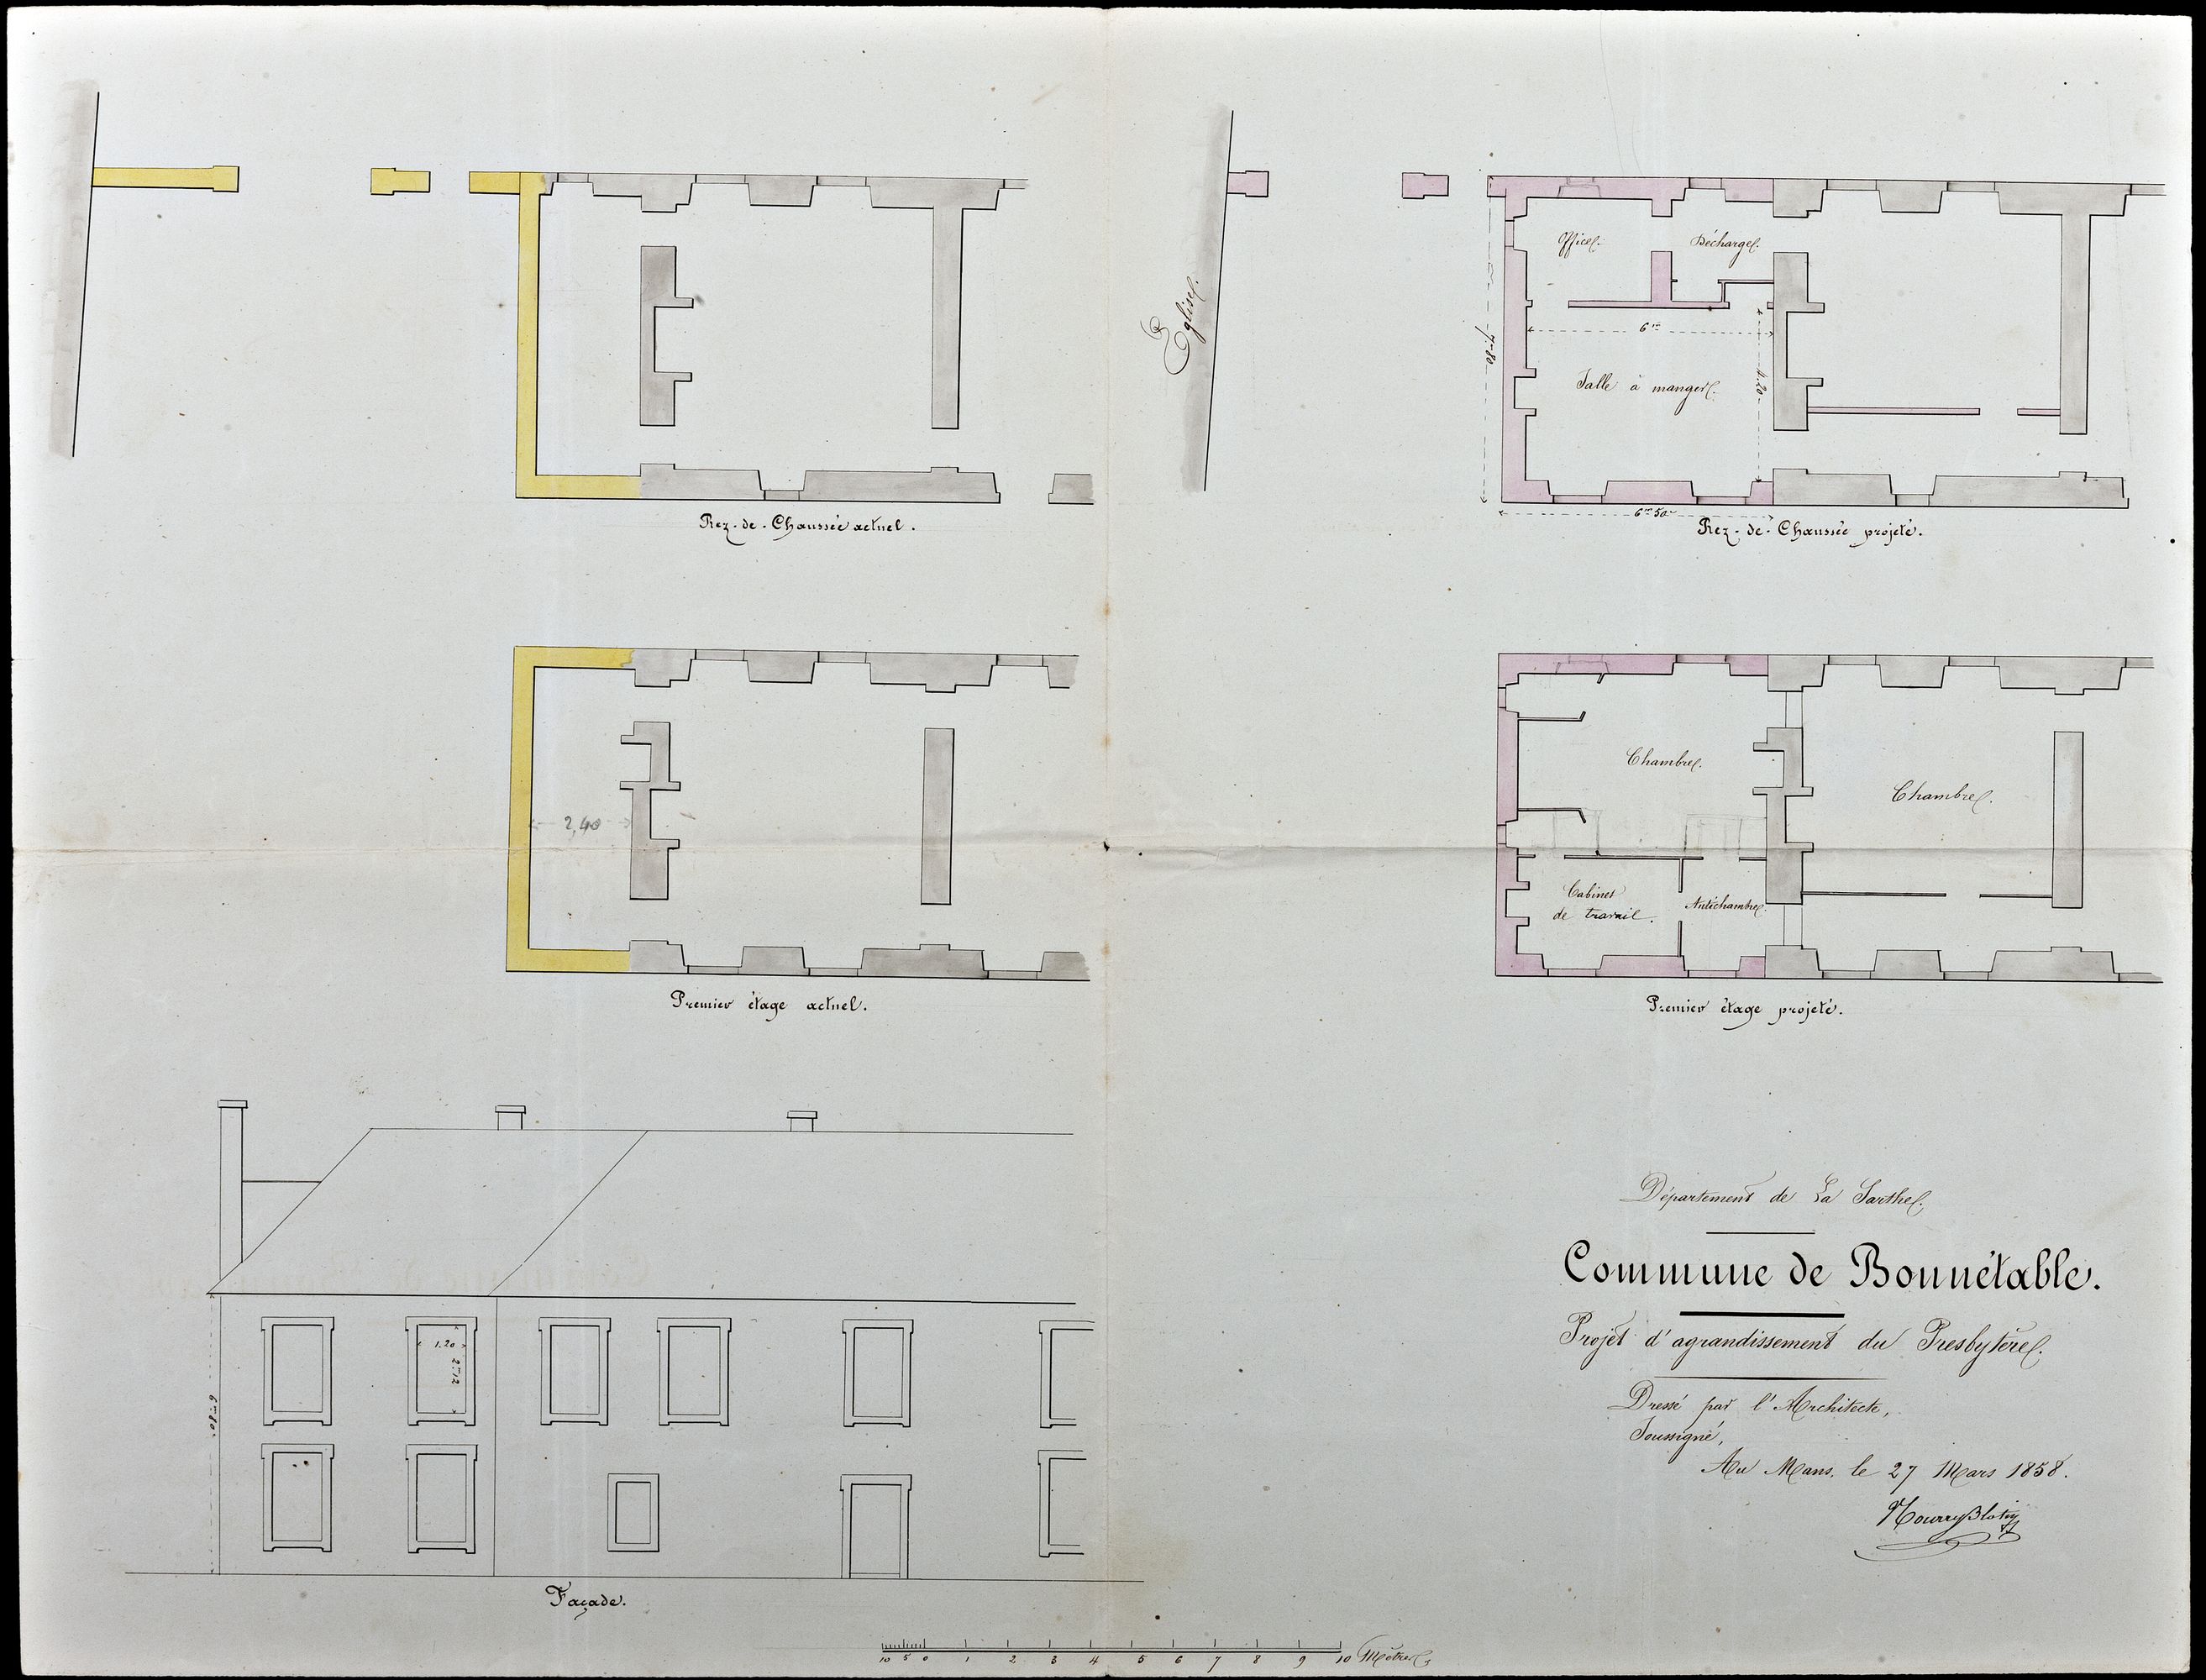 Rez-de-Chaussée actuel.
Eglise.
Office.
Décharge.
6m
7m80
4.20
Salle à manger.
6m50c
Rez-de-Chaussée projeté.
2,40
Premier étage actuel.
Chambre.
Chambre.
Cabinet
de travail.
Antichambre.
Premier étage projeté.
1.20
2m12
6m80c
Façade.
10 5 0 1 2 3 4 5 6 7 8 9 10 Mètres
Département de La Sarthe.
Commune de Bonnétable.
Projet d'agrandissement du Presbytère.
Dressé par l'Architecte,
Soussigné,
Au Mans, le 27 Mars 1858.